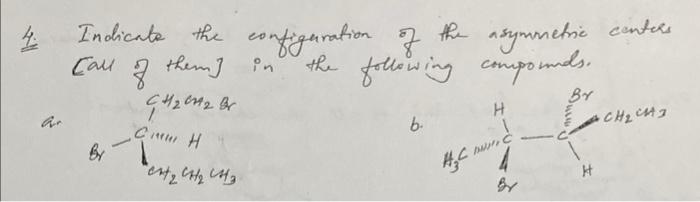 4. Indicate the configuration of the asymmetric centers
[all of them] in the following compounds.
a.
CH2CH2Br
C H
Br
CH2CH2CH3
b.
H Br
H3C C C CH2CH3
Br H